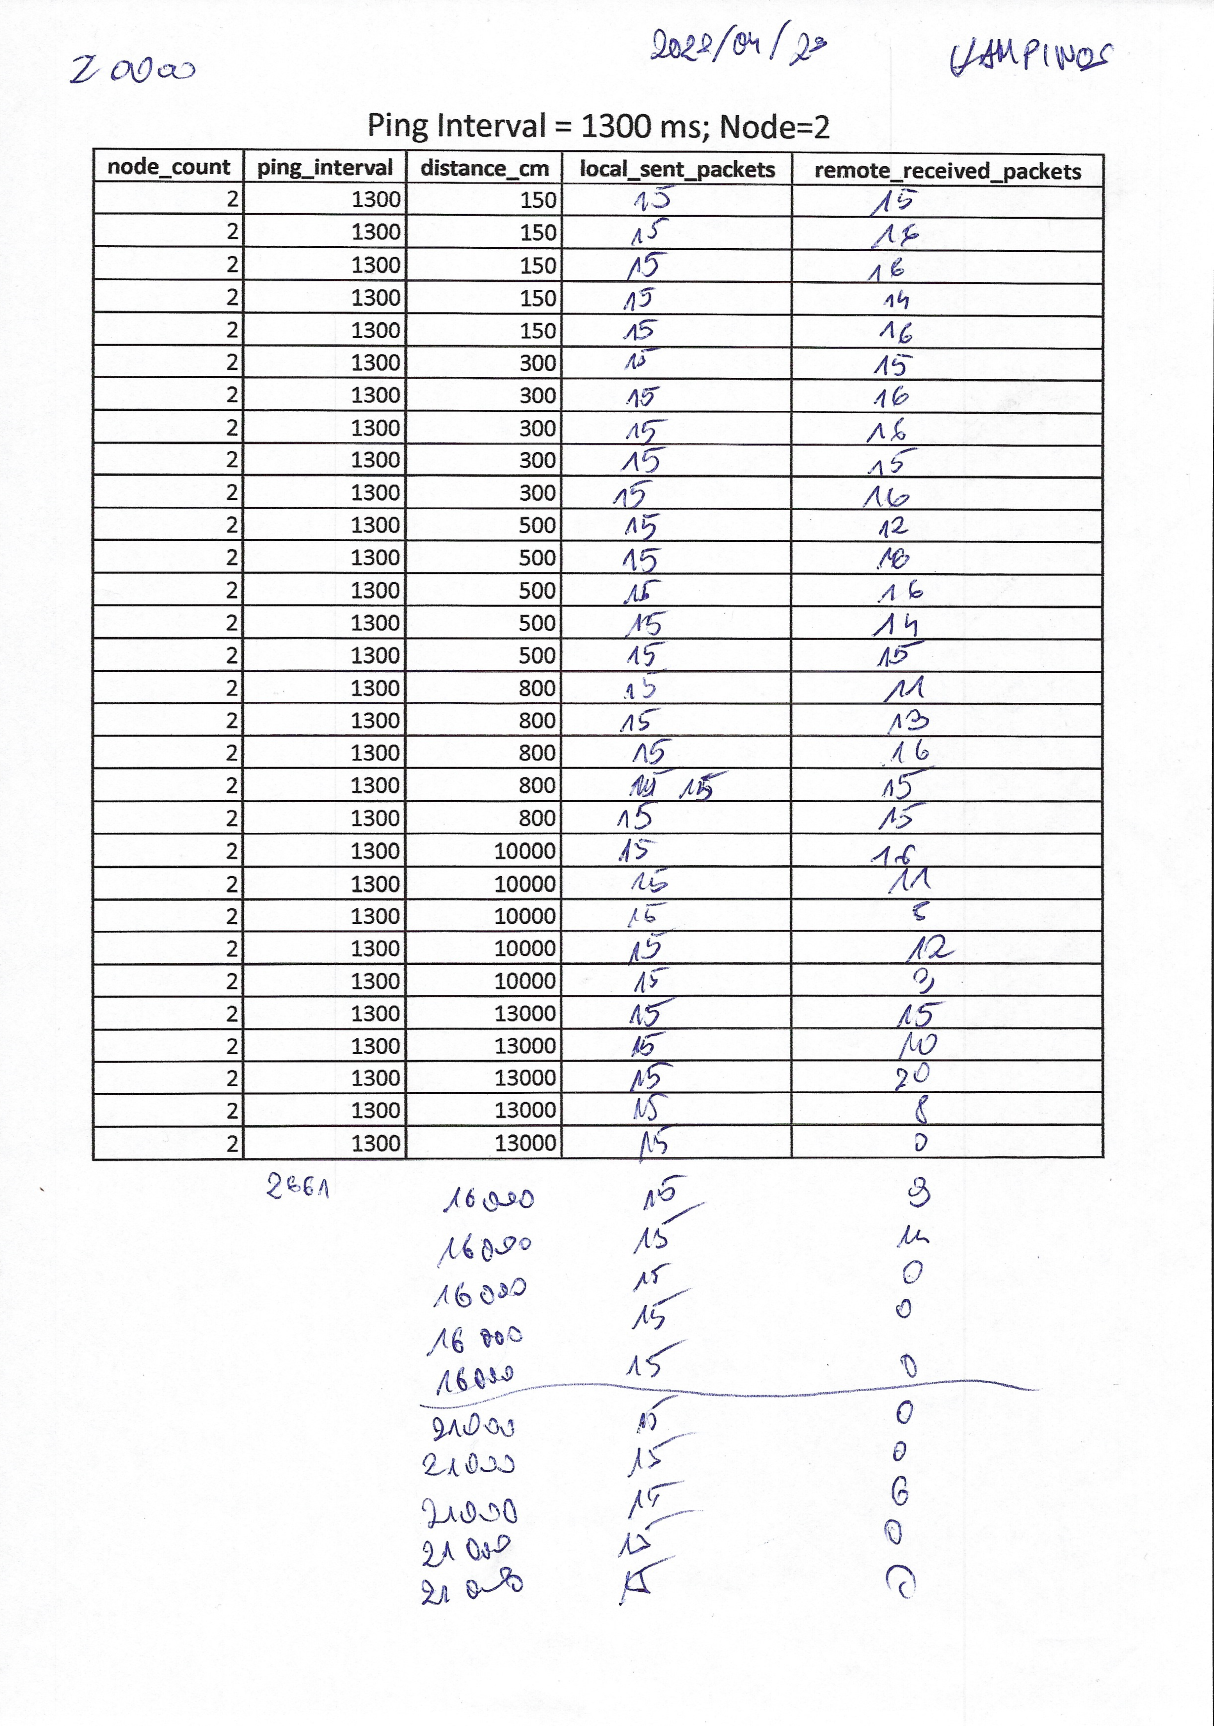 20000 2022/04/29 KAMPINOS
Ping Interval = 1300 ms; Node=2
node_count ping_interval distance_cm local_sent_packets remote_received_packets
2 1300 150 15 15
2 1300 150 15 16
2 1300 150 15 16
2 1300 150 15 14
2 1300 150 15 16
2 1300 300 15 15
2 1300 300 15 16
2 1300 300 15 16
2 1300 300 15 15
2 1300 300 15 16
2 1300 500 15 12
2 1300 500 15
2 1300 500 15 16
2 1300 500 15 14
2 1300 500 15 15
2 1300 800 15 11
2 1300 800 15 13
2 1300 800 15 16
2 1300 800 15 15
2 1300 800 15 15
2 1300 10000 15 16
2 1300 10000 15 11
2 1300 10000 15
2 1300 10000 15 12
2 1300 10000 15 3
2 1300 13000 15 15
2 1300 13000 15 10
2 1300 13000 15 20
2 1300 13000 15 8
2 1300 13000 15 0
2661 16000 15
16000 15
16000 15 0
16000 15 0
16000 15 0
21000 15 0
21000 15 0
21000 15 6
21000 15 0
21000 15 0